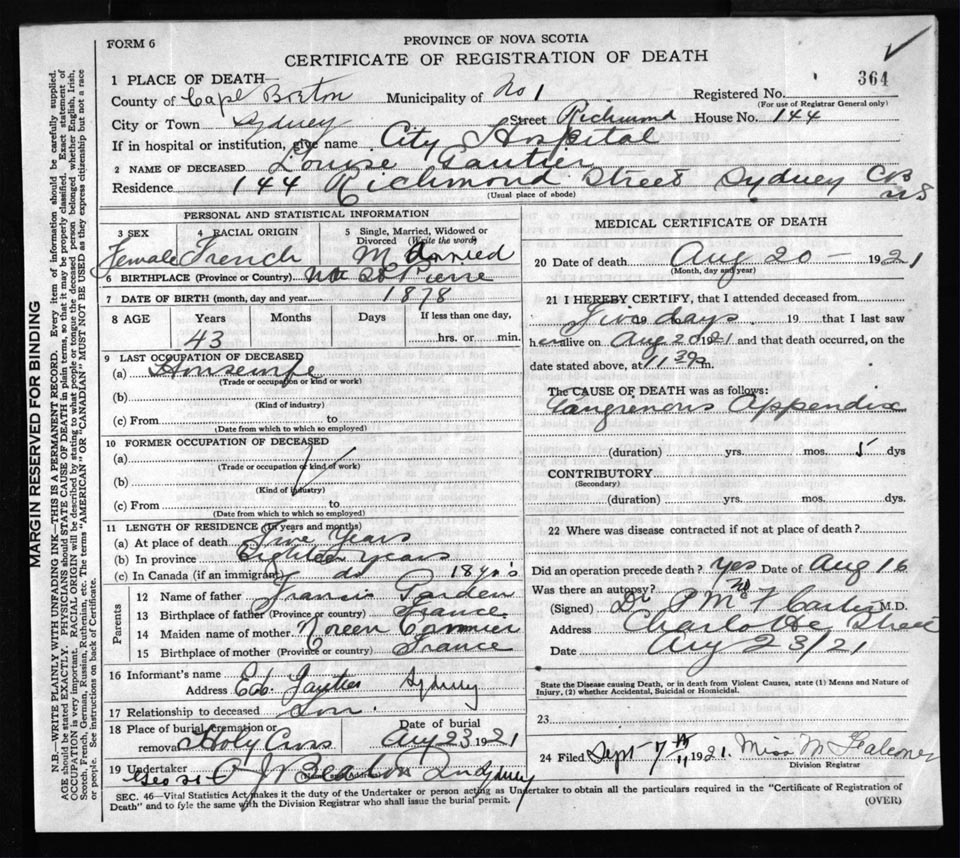 FORM 6
PROVINCE OF NOVA SCOTIA
CERTIFICATE OF REGISTRATION OF DEATH
364
1 PLACE OF DEATH—
County of Cape Breton Municipality of No 1 Registered No.
(For use of Registrar General only)
City or Town Sydney Street Richmond House No. 144
If in hospital or institution, give name City Hospital
2 NAME OF DECEASED Louise Gautier
Residence 144 Richmond Street Sydney CB NS
(Usual place of abode)
PERSONAL AND STATISTICAL INFORMATION
3 SEX 4 RACIAL ORIGIN 5 Single, Married, Widowed or Divorced (Write the word)
Female French Married
6 BIRTHPLACE (Province or Country) St Pierre
7 DATE OF BIRTH (month, day and year) 1878
8 AGE Years Months Days If less than one day,
43 hrs. or min.
9 LAST OCCUPATION OF DECEASED
(a) Housewife
(Trade or occupation or kind or work)
(b)
(Kind of industry)
(c) From to
(Date from which to which so employed)
10 FORMER OCCUPATION OF DECEASED
(a)
(Trade or occupation or kind of work)
(b)
(Kind of industry)
(c) From to
(Date from which to which so employed)
11 LENGTH OF RESIDENCE (In years and months)
(a) At place of death Five Years
(b) In province Eighteen years
(c) In Canada (if an immigrant) do 18 yrs
Parents
12 Name of father Francis
13 Birthplace of father (Province or country) France
14 Maiden name of mother Cormier
15 Birthplace of mother (Province or country) France
16 Informant's name
Address Ed. Gautier Sydney
17 Relationship to deceased Son.
18 Place of burial, cremation or removal Holy Cross Date of burial Aug 23 1921
19 Undertaker Sydney
(Name and address)
MEDICAL CERTIFICATE OF DEATH
20 Date of death Aug 20 — 1921
(Month, day and year)
21 I HEREBY CERTIFY, that I attended deceased from
Five days 19 19 that I last saw
her alive on Aug 20 1921 and that death occurred, on the
date stated above, at 11 m.
The CAUSE OF DEATH was as follows:
Gangrenous Appendix
(duration) yrs. mos. 5 dys
CONTRIBUTORY
(Secondary)
(duration) yrs. mos. dys.
22 Where was disease contracted if not at place of death?
Did an operation precede death? yes Date of Aug 16
Was there an autopsy? No
(Signed) Dr M.D.
Address Charlotte Street
Date Aug 23/21
State the Disease causing Death, or in death from Violent Causes, state (1) Means and Nature of
Injury, (2) whether Accidental, Suicidal or Homicidal.
23
24 Filed Sept 7th 1921. Miss M Falconer
Division Registrar
SEC. 46—Vital Statistics Act makes it the duty of the Undertaker or person acting as Undertaker to obtain all the particulars required in the "Certificate of Registration of
Death" and to fyle the same with the Division Registrar who shall issue the burial permit. (OVER)
MARGIN RESERVED FOR BINDING
N.B.—WRITE PLAINLY WITH UNFADING INK—THIS IS A PERMANENT RECORD. Every item of information should be carefully supplied.
AGE should be stated EXACTLY. PHYSICIANS should STATE CAUSE OF DEATH in plain terms, so that it may be properly classified. Exact statement of
OCCUPATION is very important. RACIAL ORIGIN will be described by stating to what people or tongue the deceased person belonged whether English, Irish,
Scotch, French, German, Russian, Ruthenian, etc. The terms "AMERICAN" OR "CANADIAN" MUST NOT BE USED as they express citizenship but not a race
or people. See instructions on back of Certificate.